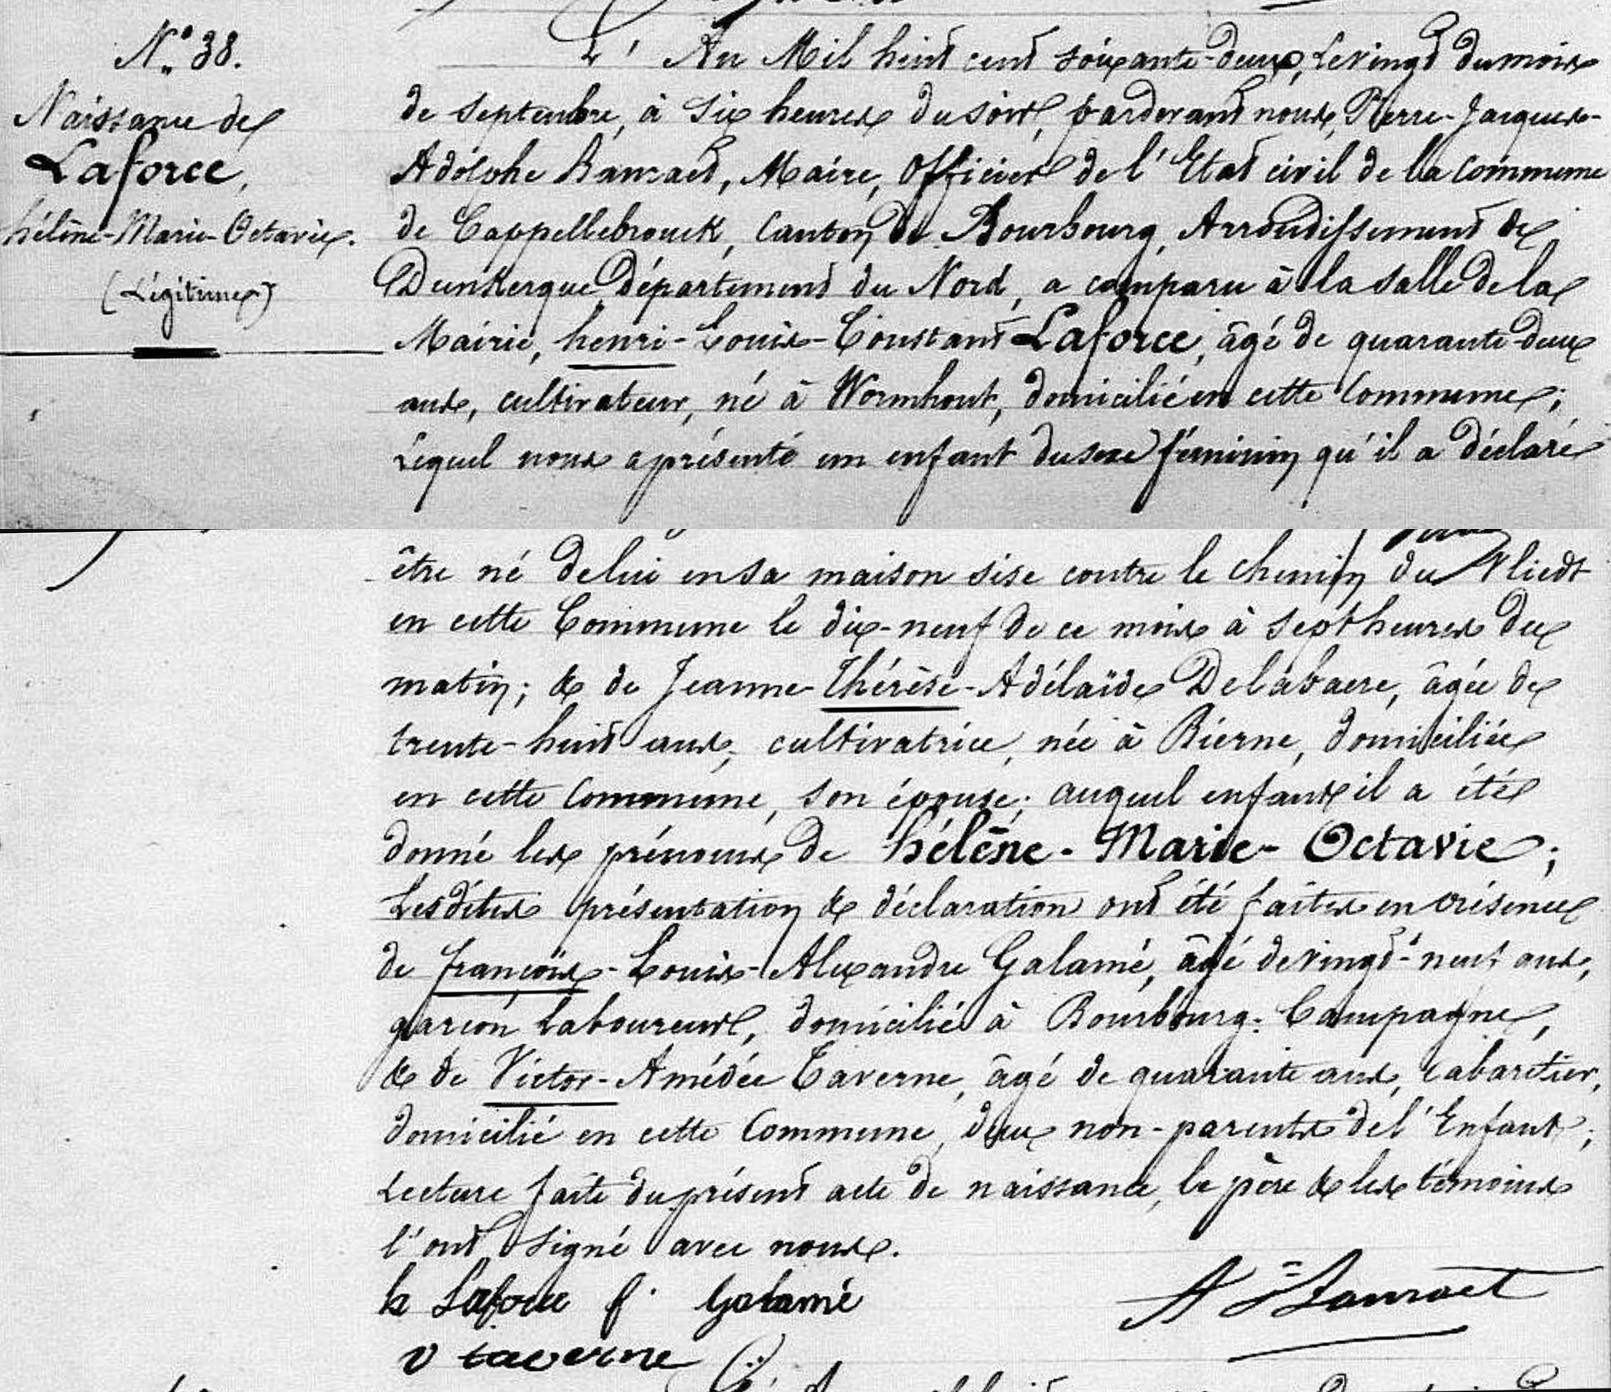 N° 38.
Naissance de
Laforce,
hélène-Marie-Octavie.
(Légitime)
L'An Mil huit cent soixante-deux, le vingt du mois
de septembre, à six heures du soir, pardevant nous, Pierre-Jacques-
Adolphe Maire, Officier de l'Etat civil de la commune
de Cappellebrouck, Canton de Bourbourg, Arrondissement de
Dunkerque, Département du Nord, a comparu à la salle de la
Mairie, henri-Louis-Constant Laforce, âgé de quarante-deux
ans, cultivateur, né à Wormhout, domicilié en cette Commune;
Lequel nous a présenté un enfant du sexe féminin qu'il a déclaré
être né de lui en sa maison sise contre le chemin du Vliedt
en cette Commune le dix-neuf de ce mois à sept heures du
matin; & de Jeanne-Thérèse-Adélaïde Delabaere, âgée de
trente-huit ans, cultivatrice, née à Bierne, domiciliée
en cette Commune, son épouse; auquel enfant il a été
donné les prénoms de hélène-Marie-Octavie;
Lesdites présentation & déclaration ont été faites en présence
de françois-Louis-Alexandre Galamé, âgé de vingt-neuf ans,
garçon laboureur, domicilié à Bourbourg-Campagne,
& de Victor-Amédée Taverne, âgé de quarante ans, cabaretier,
domicilié en cette Commune, deux non-parents de l'Enfant;
Lecture faite du présent acte de naissance, le père & les témoins
l'ont signé avec nous.
h Laforce f. Galamé
v taverne